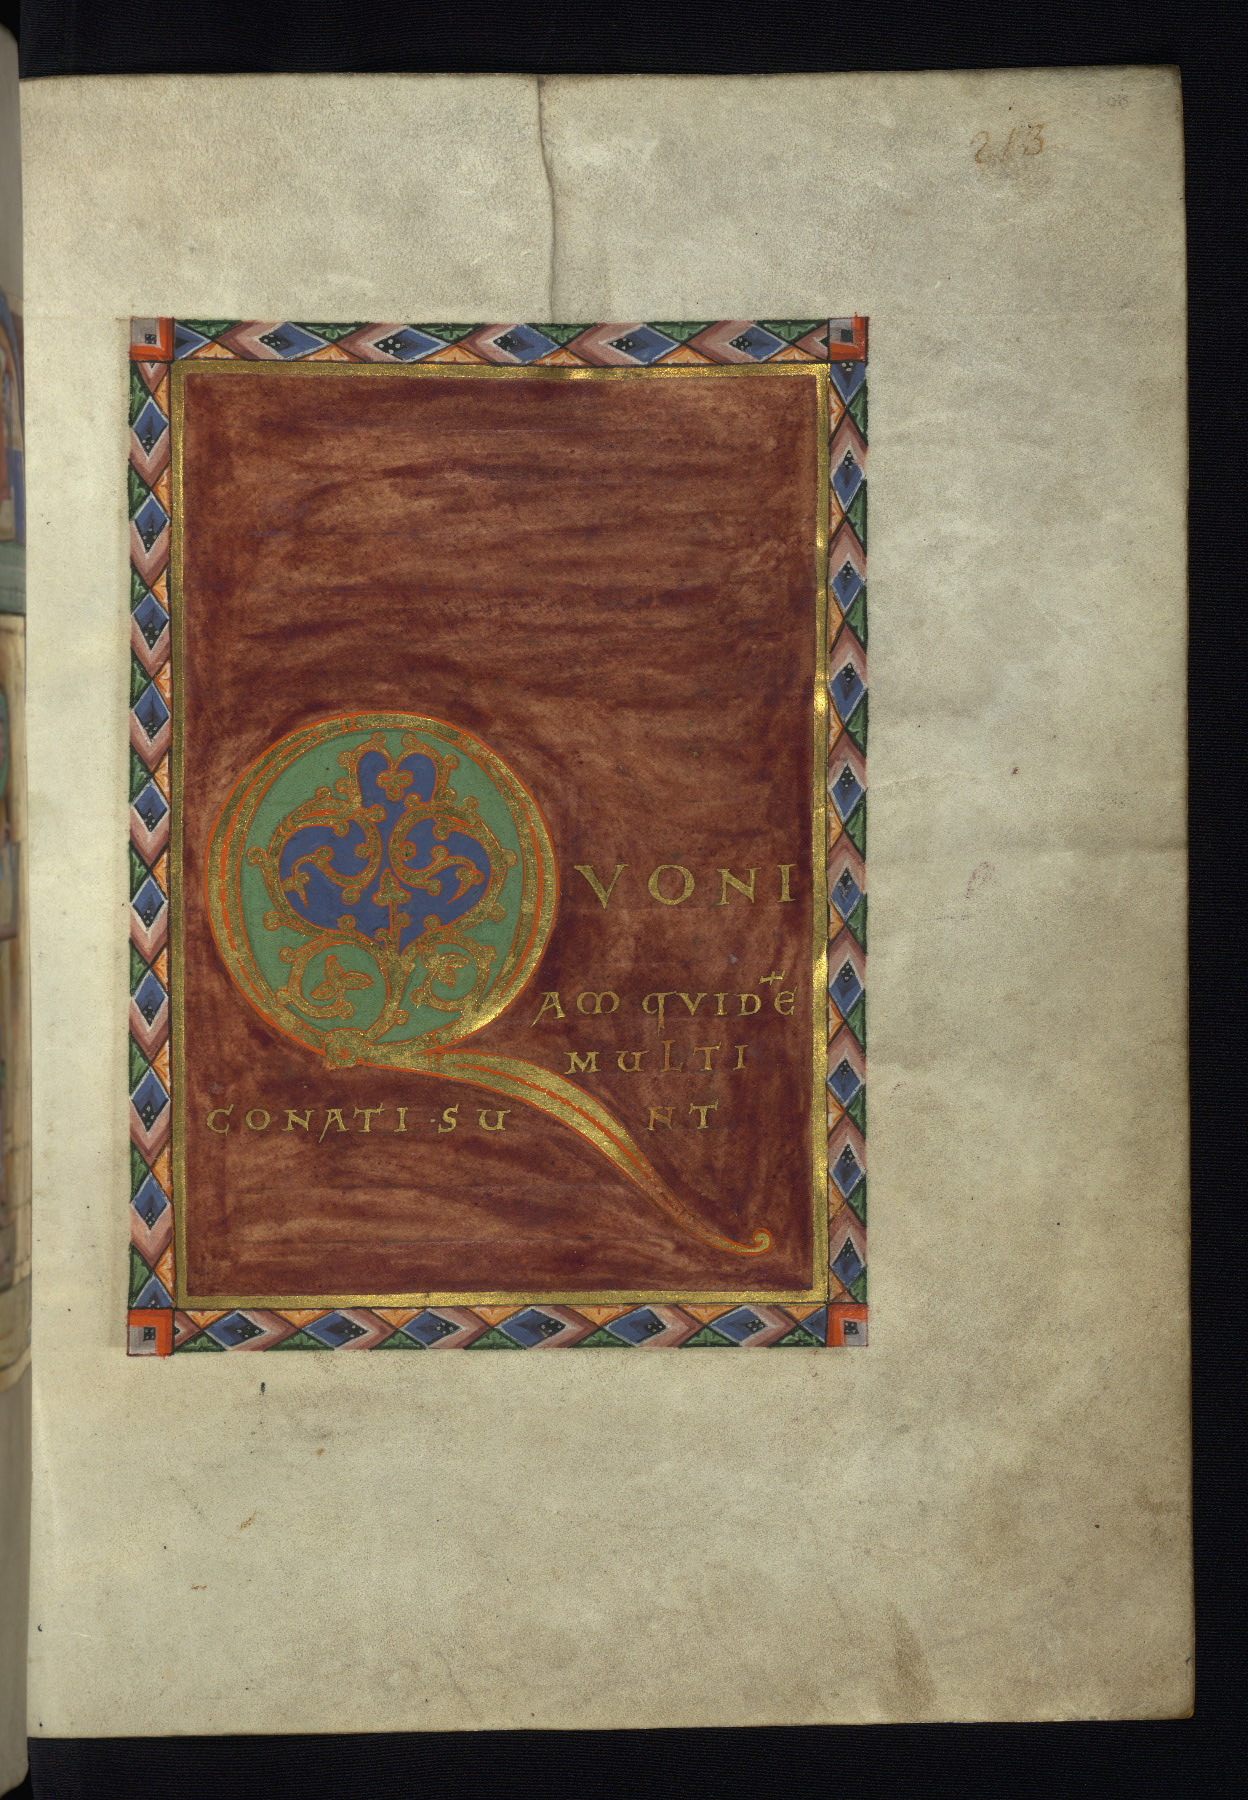 213
QVONI
AM QVIDE
MULTI
CONATI · SUNT